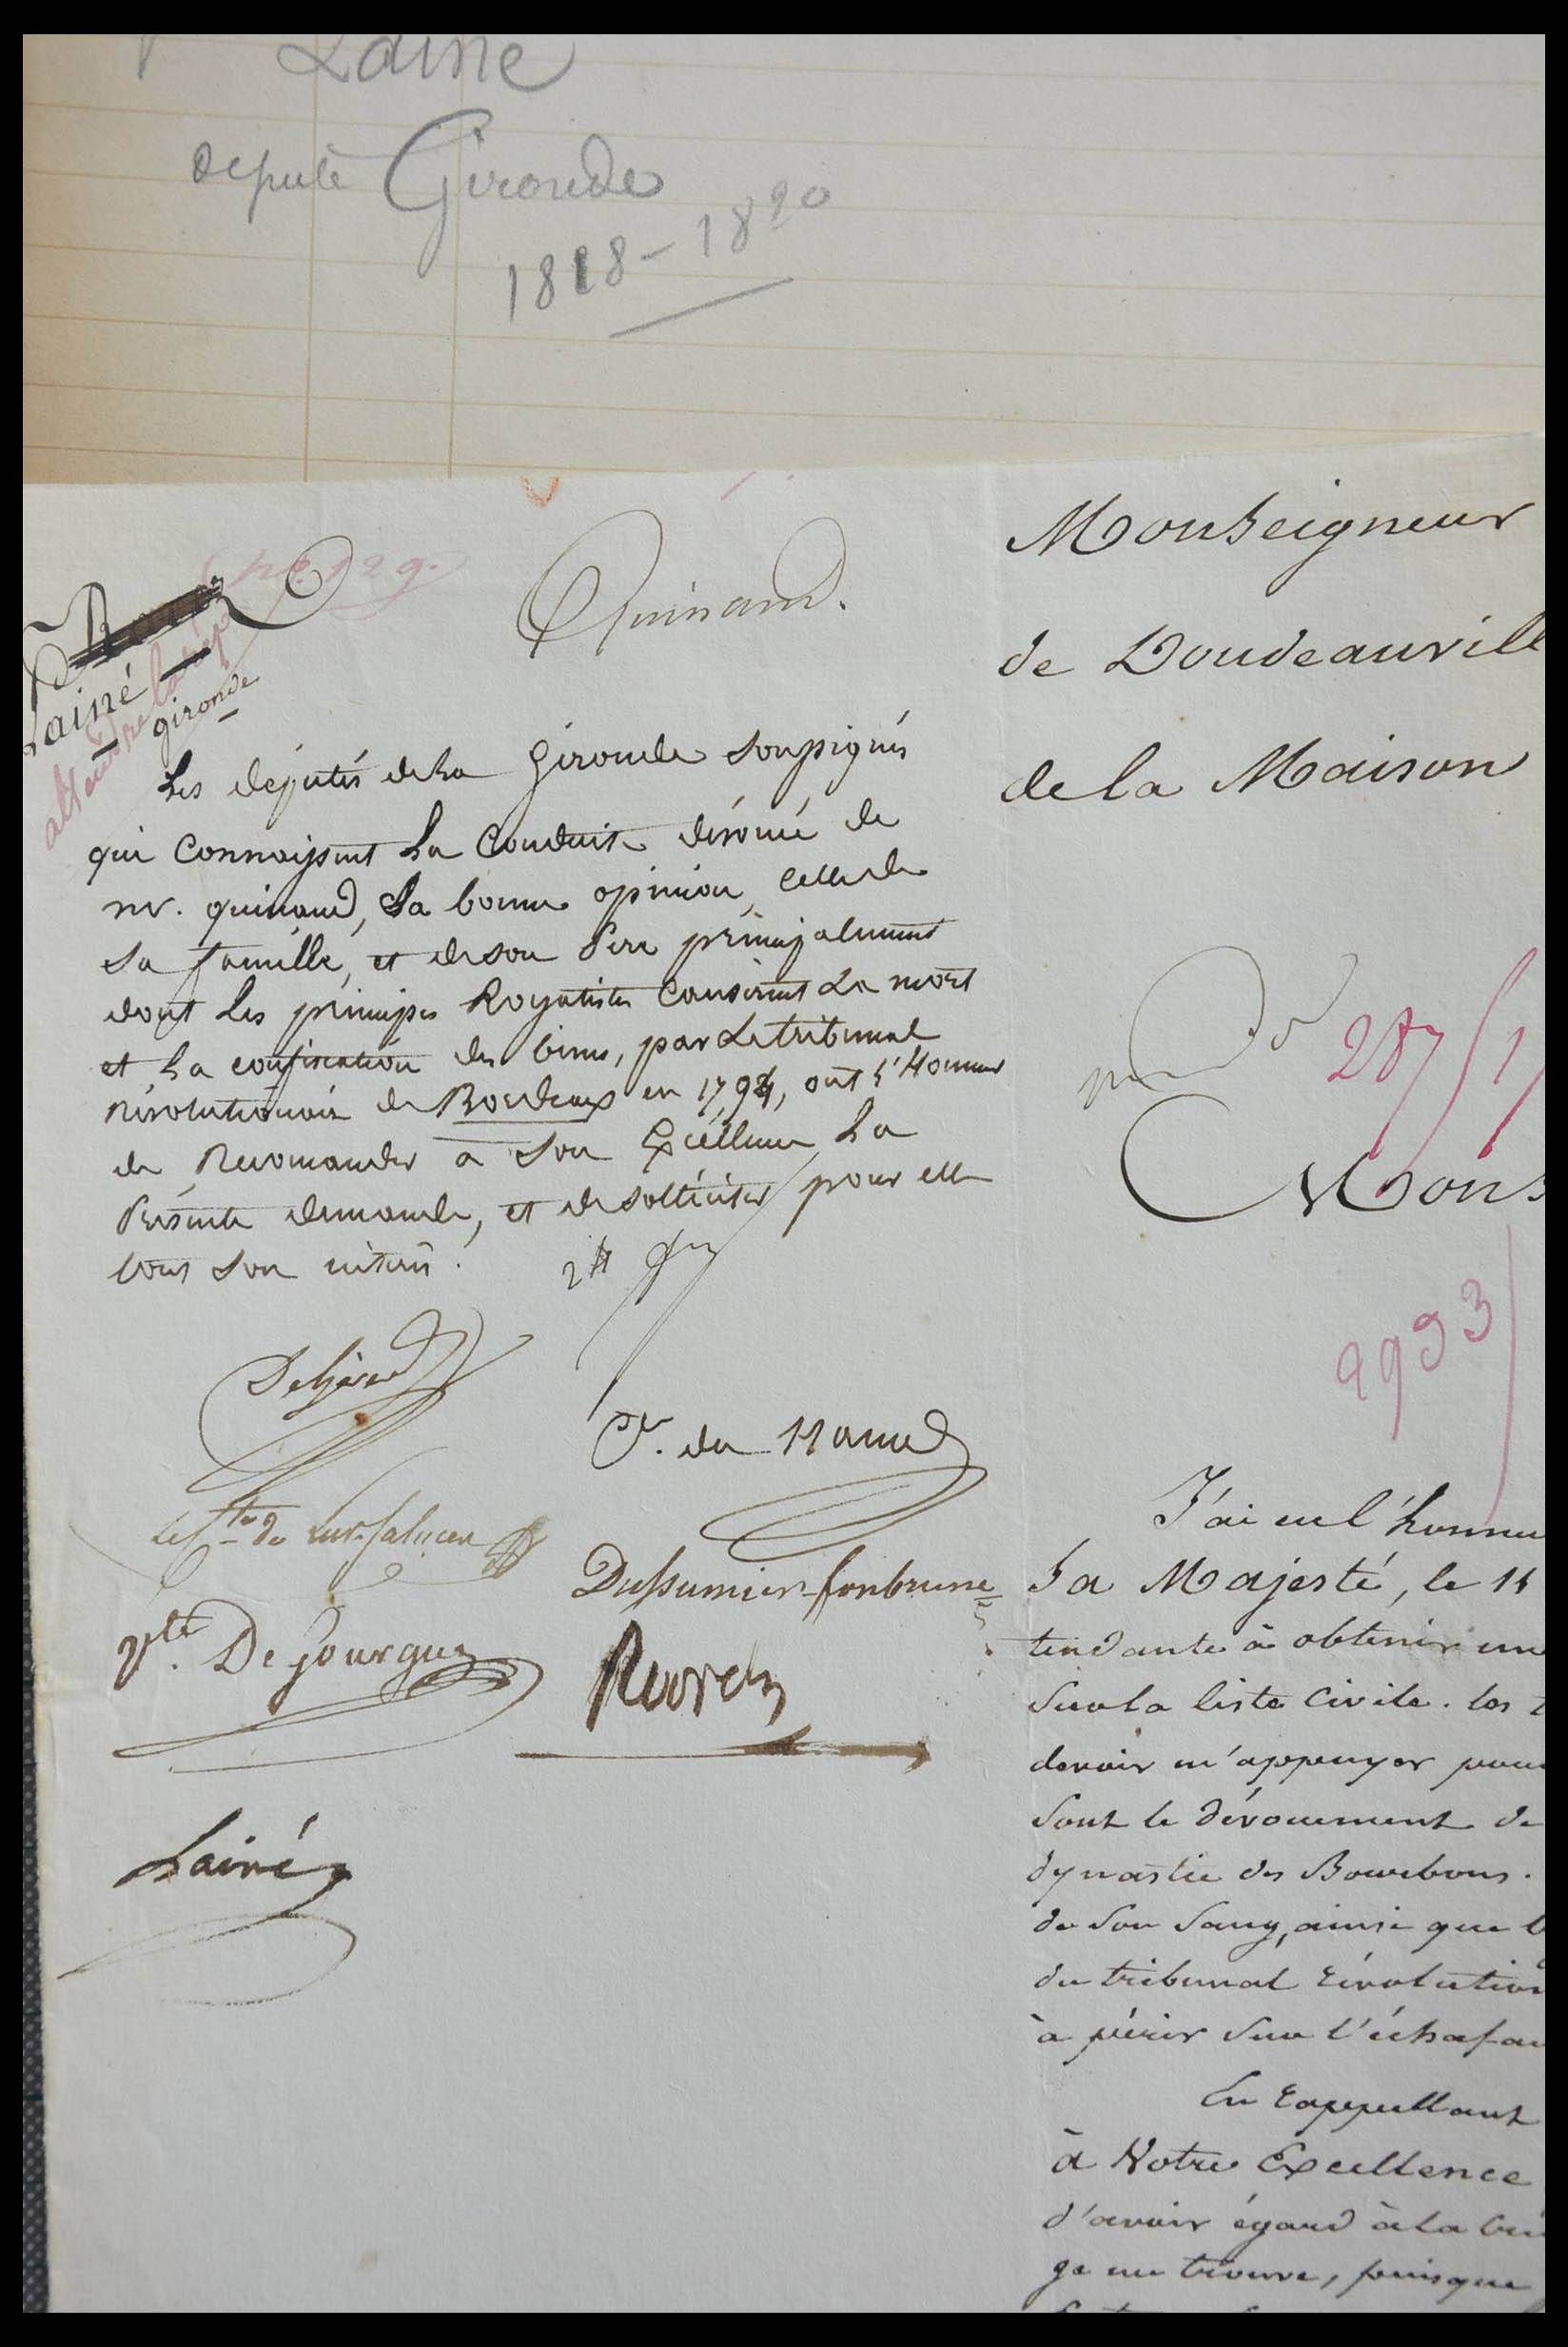 Lainé
député Gironde
1818-1820
Quinaud.
Lainé
gironde
Les députés de La Gironde soussignés
qui connaissent La Conduite dévoué de
mr. quinaud, Sa bonne opinion, celle de
sa famille, et de son Père principalement
dont les principes Royalistes causèrent La mort
et La confiscation des biens, par Le tribunal
révolutionnaire de Bordeaux en 1794, ont l'Honneur
de Recomander à Son Excellence La
Présente demande, et de solliciter pour elle
tout son intérêt.
Ch. du Hamel
de lur-Saluces
Dussumier-fonbrune
Vte. De Gourgues
Ravez
Lainé
Monseigneur
de Doudeauvill
de la Maison
287/1
Mons
9993
J'ai eu l'honneu
Sa Majesté, le 14
tendante à obtenir une
sur la liste Civile. les
devoir m'appuyer pour
sont le dévouement de
dynastie des Bourbons.
de son sang, ainsi que l
du tribunal révolution
à périr sur l'échafau
En rappellant
à Votre Excellence
d'avoir égard à la
je me trouve, puisque